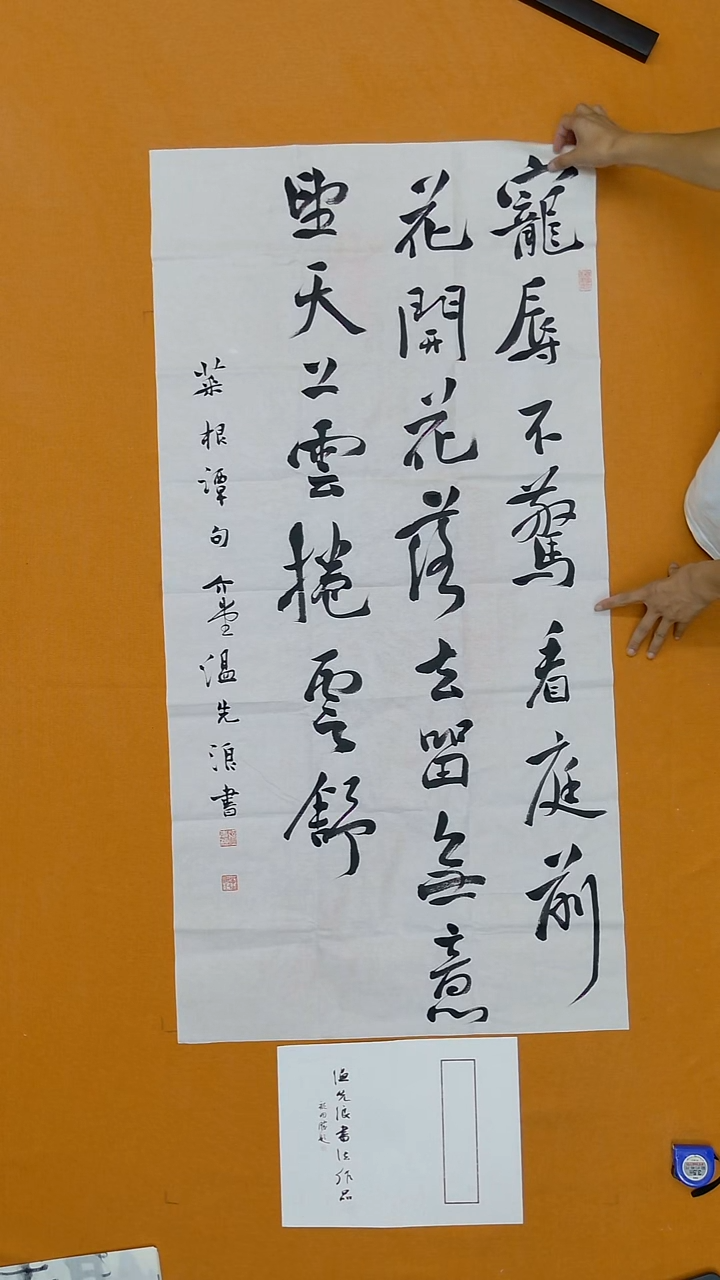 寵辱不驚看庭前
花開花落去留無意
望天上雲捲雲舒
菜根譚句 温先浪書
温先浪書法作品